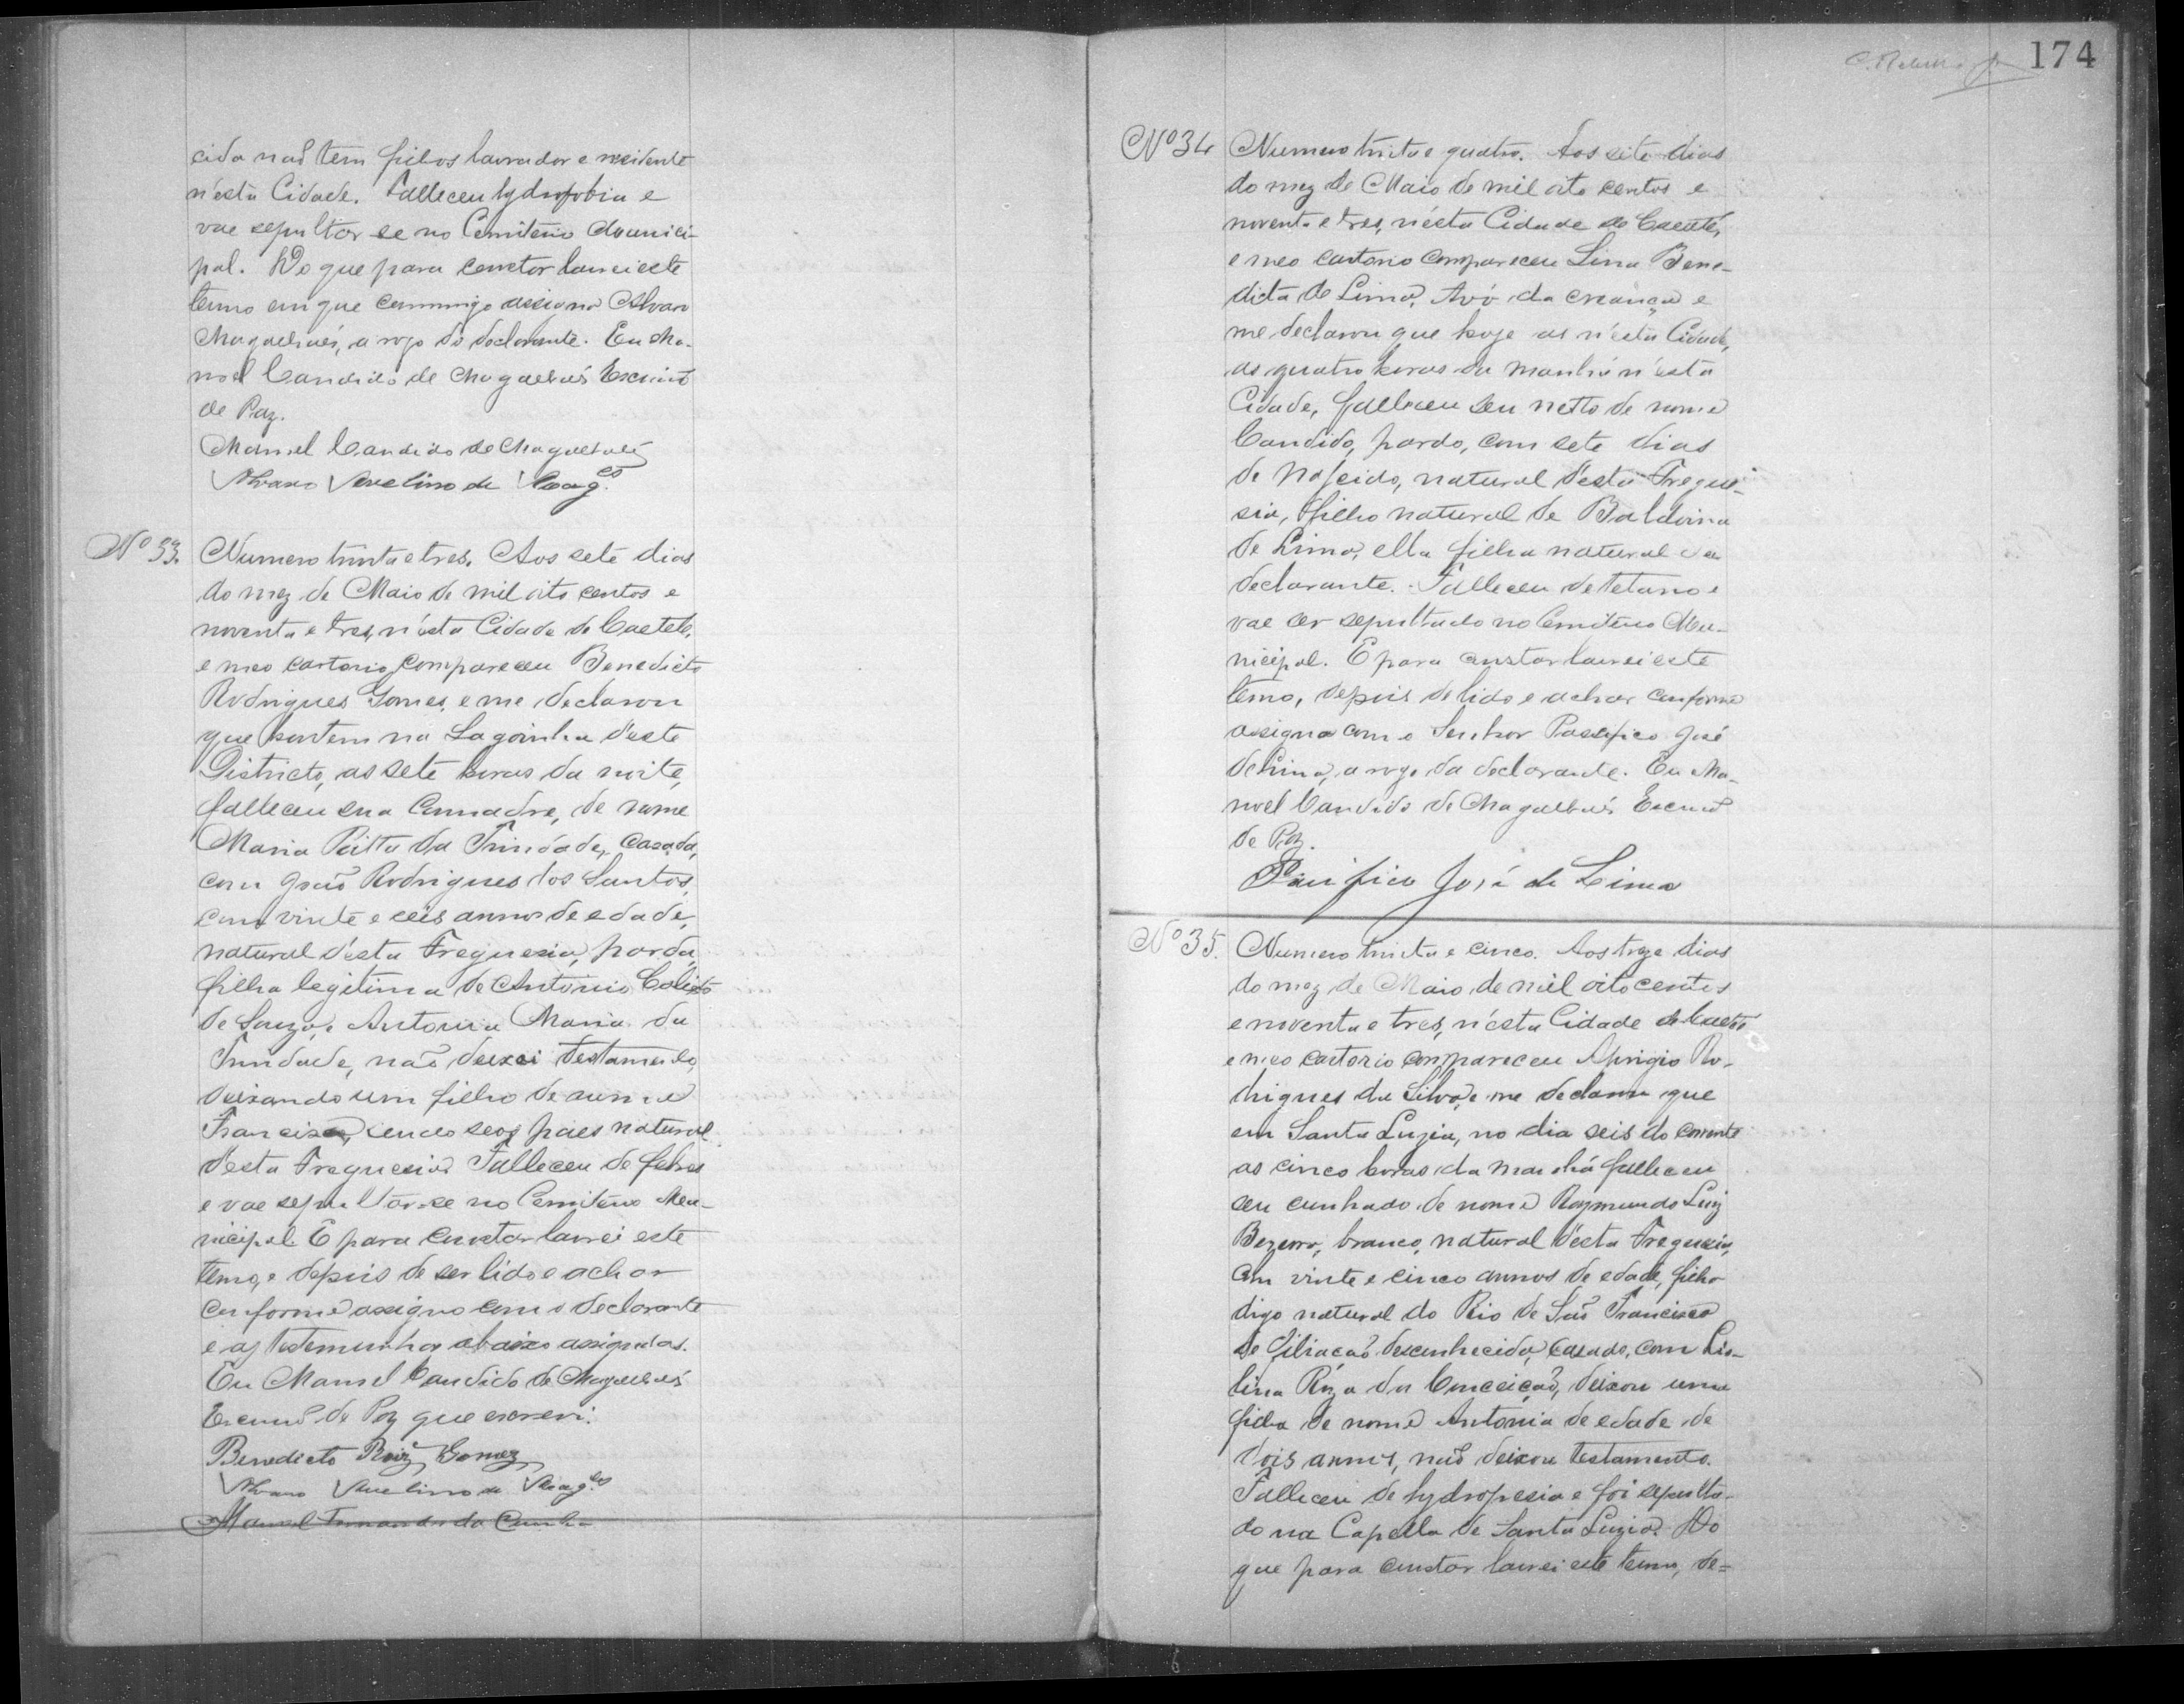 cida não tem filhos lavrador e residente
n'esta Cidade. Falleceu hydrofobia e
vae sepultar se no Cemiterio Munici-
pal. Do que para constar lavrei este
termo em que commigo assigna Alvaro
Magalhães, a rogo do declarante. Eu Ma-
noel Candido de Magalhães Escrivão
de Paz.
Manoel Candido de Magalhães
Alvaro Avelino de Mag.es
Nº 33.
Numero trinta e tres. Aos sete dias
do mez de Maio de mil oito centos e
noventa e tres, n'esta Cidade de Caeteté,
e meo cartorio, compareceu Benedicto
Rodrigues Gomes, e me declarou
que hontem na Lagoinha d'este
Districto, as sete horas da noite,
falleceu sua Comadre, de nome
Maria Ritta da Trindade, casada,
com João Rodrigues dos Santos,
com vinte e seis annos de edade,
natural d'esta Freguesia, parda,
filha legitima de Antonio
de Souza, e Antonia Maria da
Trindade, não deixou testamento,
deixando um filho de nome
Francisco, sendo seos paes natural
d'esta Freguesia. Falleceu de febres
e vae sepultar-se no Cemiterio Mu-
nicipal. E para constar lavrei este
termo, e depois de ser lido e achar
conforme assigno com o declarante
e as testemunhas abaixo assignadas.
Eu Manoel Candido de Magalhães
Escrivão de Paz que escrevi.
Benedicto Roiz Gomez
Alvaro Avelino de Mag.es
Manoel Fernandes da Cunha
174
Nº 34
Numero trinta e quatro. Aos sete dias
do mez de Maio de mil oito centos e
noventa e tres, n'esta Cidade de Caeteté,
e meo cartorio compareceu Lina Bene-
dicta de Lima, Avó da creança e
me declarou que hoje as n'esta Cidade,
as quatro horas da manhã n'esta
Cidade, falleceu seu netto de nome
Candido, pardo, com sete dias
de nascido, natural d'esta Fregue-
sia, filho natural de Baldoina
de Lima, ella filha natural da
declarante. Falleceu de tetano e
vae ser sepultado no Cemiterio Mu-
nicipal. E para constar lavrei este
termo, depois de lido e achar conforme
assigna com o Senhor Passifico José
de Lima, a rogo da declarante. Eu Ma-
noel Candido de Magalhães Escrivão
de Paz.
Pacifico José de Lima
Nº 35.
Numero trinta e cinco. Aos treze dias
do mez de Maio de mil oito centos
e noventa e tres, n'esta Cidade de Caeteté
e meo cartorio compareceu Aprigio Ro-
drigues da Silva, e me declarou que
em Santa Luzia, no dia seis do corrente
as cinco horas da manhã falleceu
seu cunhado de nome Raymundo Luiz
Bezerra, branco, natural d'esta Freguezia,
com vinte e cinco annos de edade, filho
digo natural do Rio de São Francisco
de filiação desconhecida, casado, com
Roza da Conceição, deixou uma
filha de nome Antonia de edade de
dois annos, não deixou testamento.
Falleceu de hydropesia e foi sepulta-
do na Capella de Santa Luzia. Do
que para constar lavrei este termo, de=